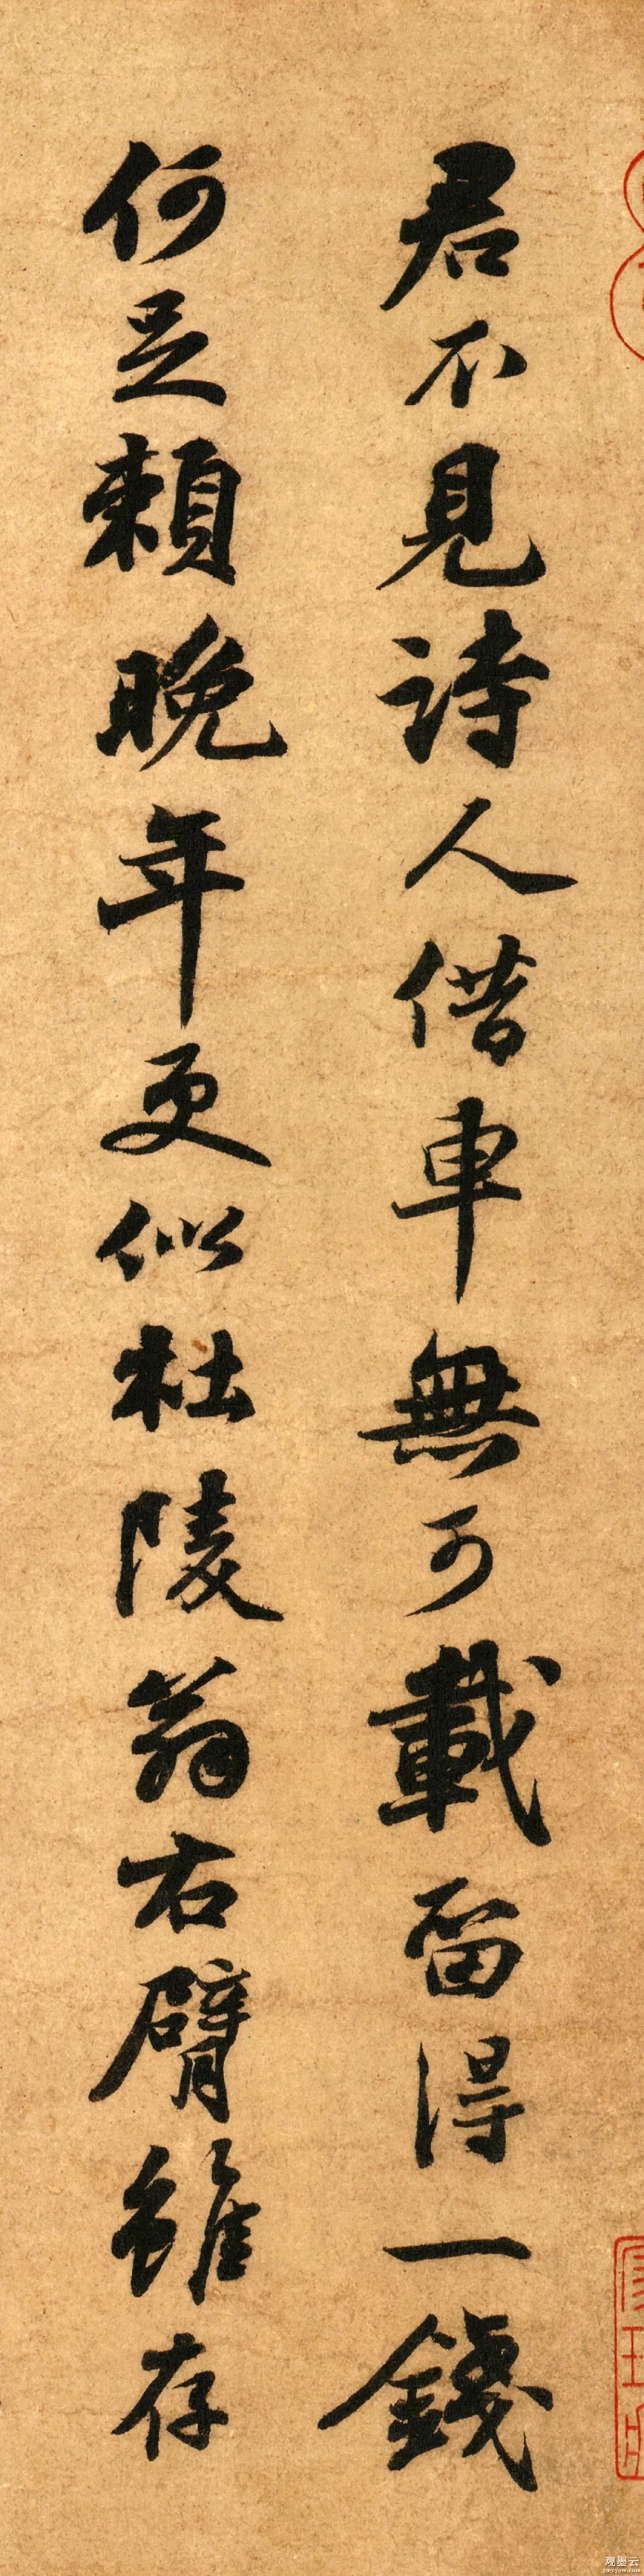 君不見詩人借車無可載留得一錢
何足賴晚年更似杜陵翁右臂雖存
观墨云